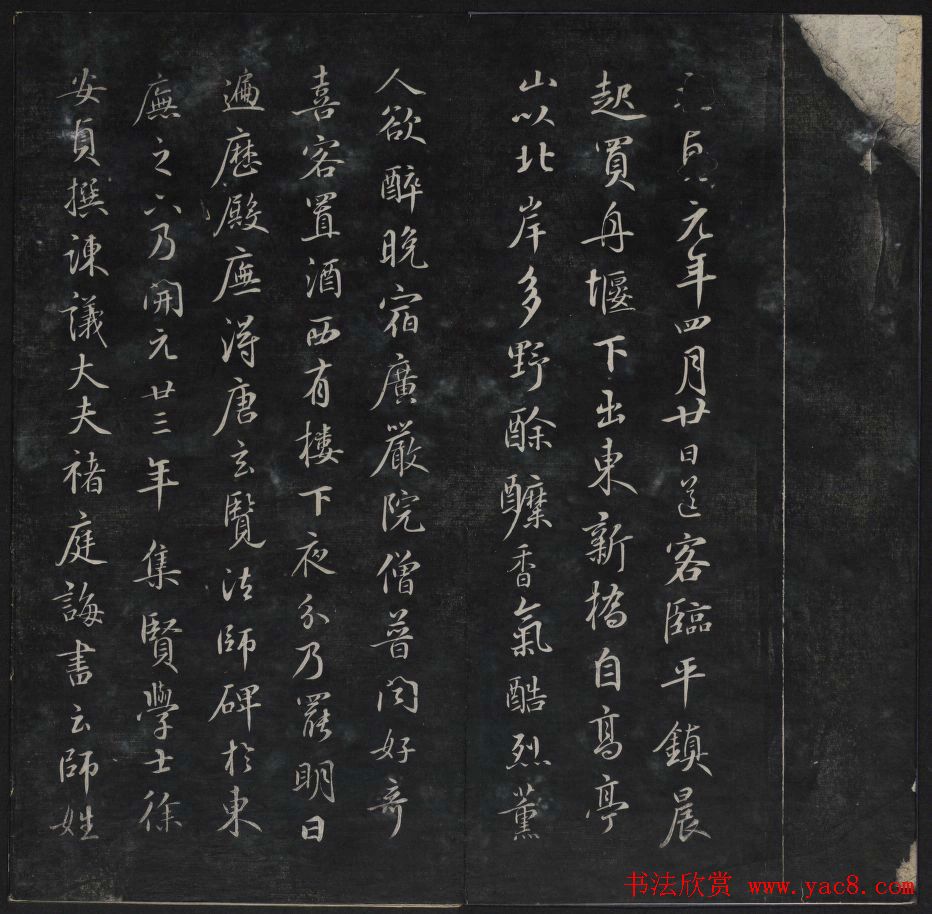 元年四月廿日送客臨平鎮晨
起買舟堰下出東新橋自髙亭
山以北岸多野酴醿香氣酷烈薰
人欲醉晚宿廣嚴院僧普聞好奇
喜客置酒西有樓下夜分乃罷明日
遍歷殿廡得唐玄覽法師碑於東
廡之穴乃開元廿三年集賢學士徐
安貞撰諫議大夫褚庭誨書云師姓
书法欣赏 www.yac8.com